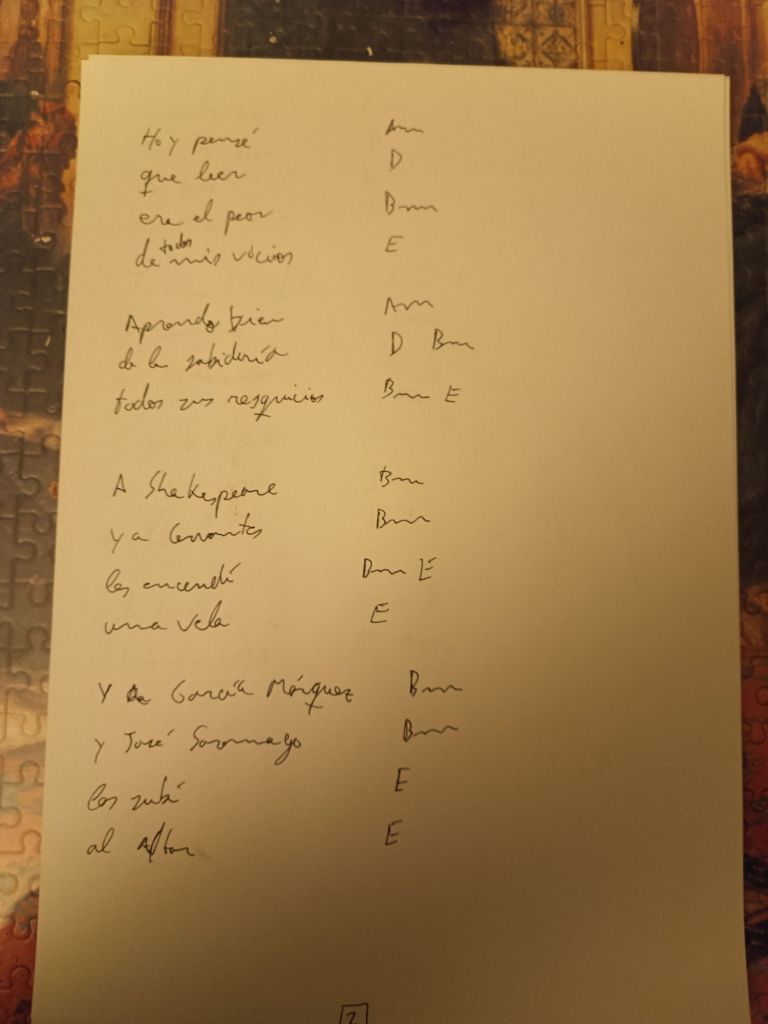 Hoy pensé Am
que leer D
era el peor Bm
de todos mis vicios E
Aprendo bien Am
de la sabiduría D Bm
todos sus resquicios Bm E
A Shakespeare Bm
y a Cervantes Bm
les encendí Bm E
una vela E
Y a García Márquez Bm
y José Saramago Bm
los subí E
al Altar E
2